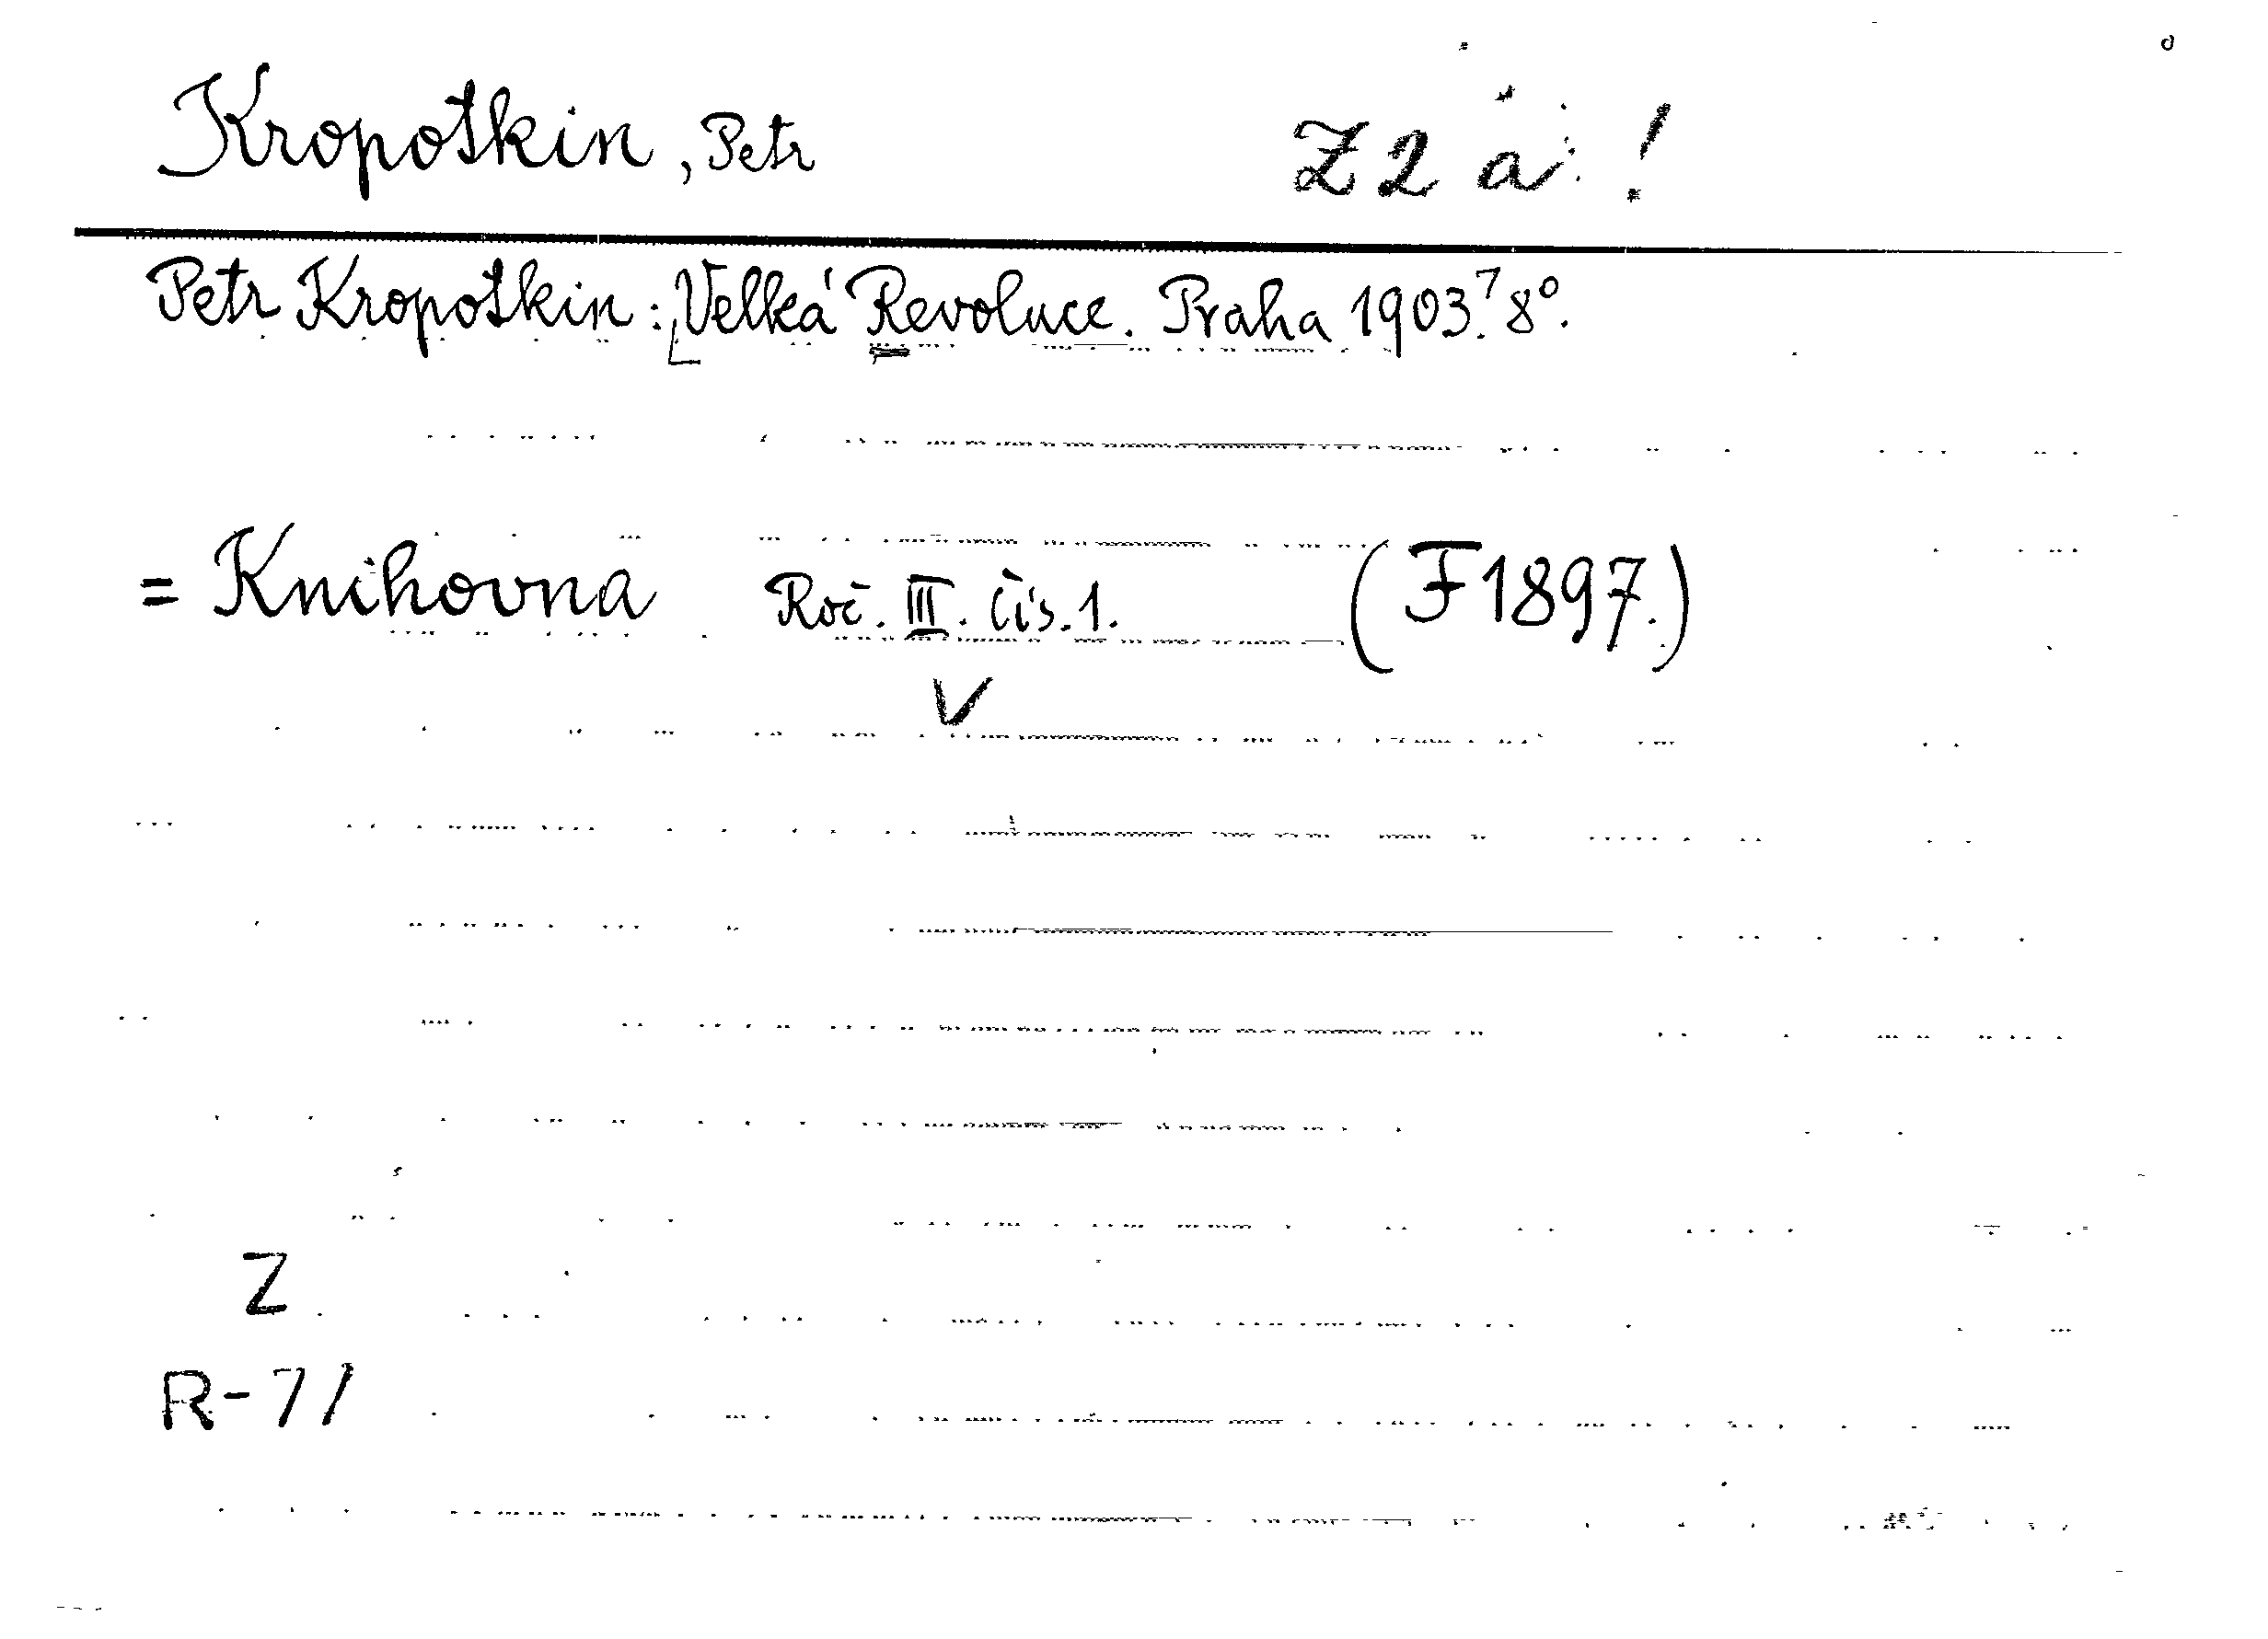 Kropotkin, Petr Z 2 a !
Petr Kropotkin: [Velká Revoluce. Praha 1903.] 8°.
= Knihovna Roč. III. čís. 1. (F 1897.)
V
Z
R-71